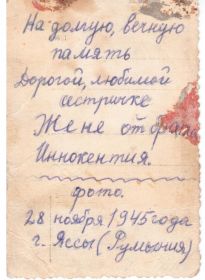 На долгую, вечную
память
Дорогой, любимой
сестричке
Жене от брата
Иннокентия.
фото.
28 ноября 1945 года
г. Яссы (Румыния)